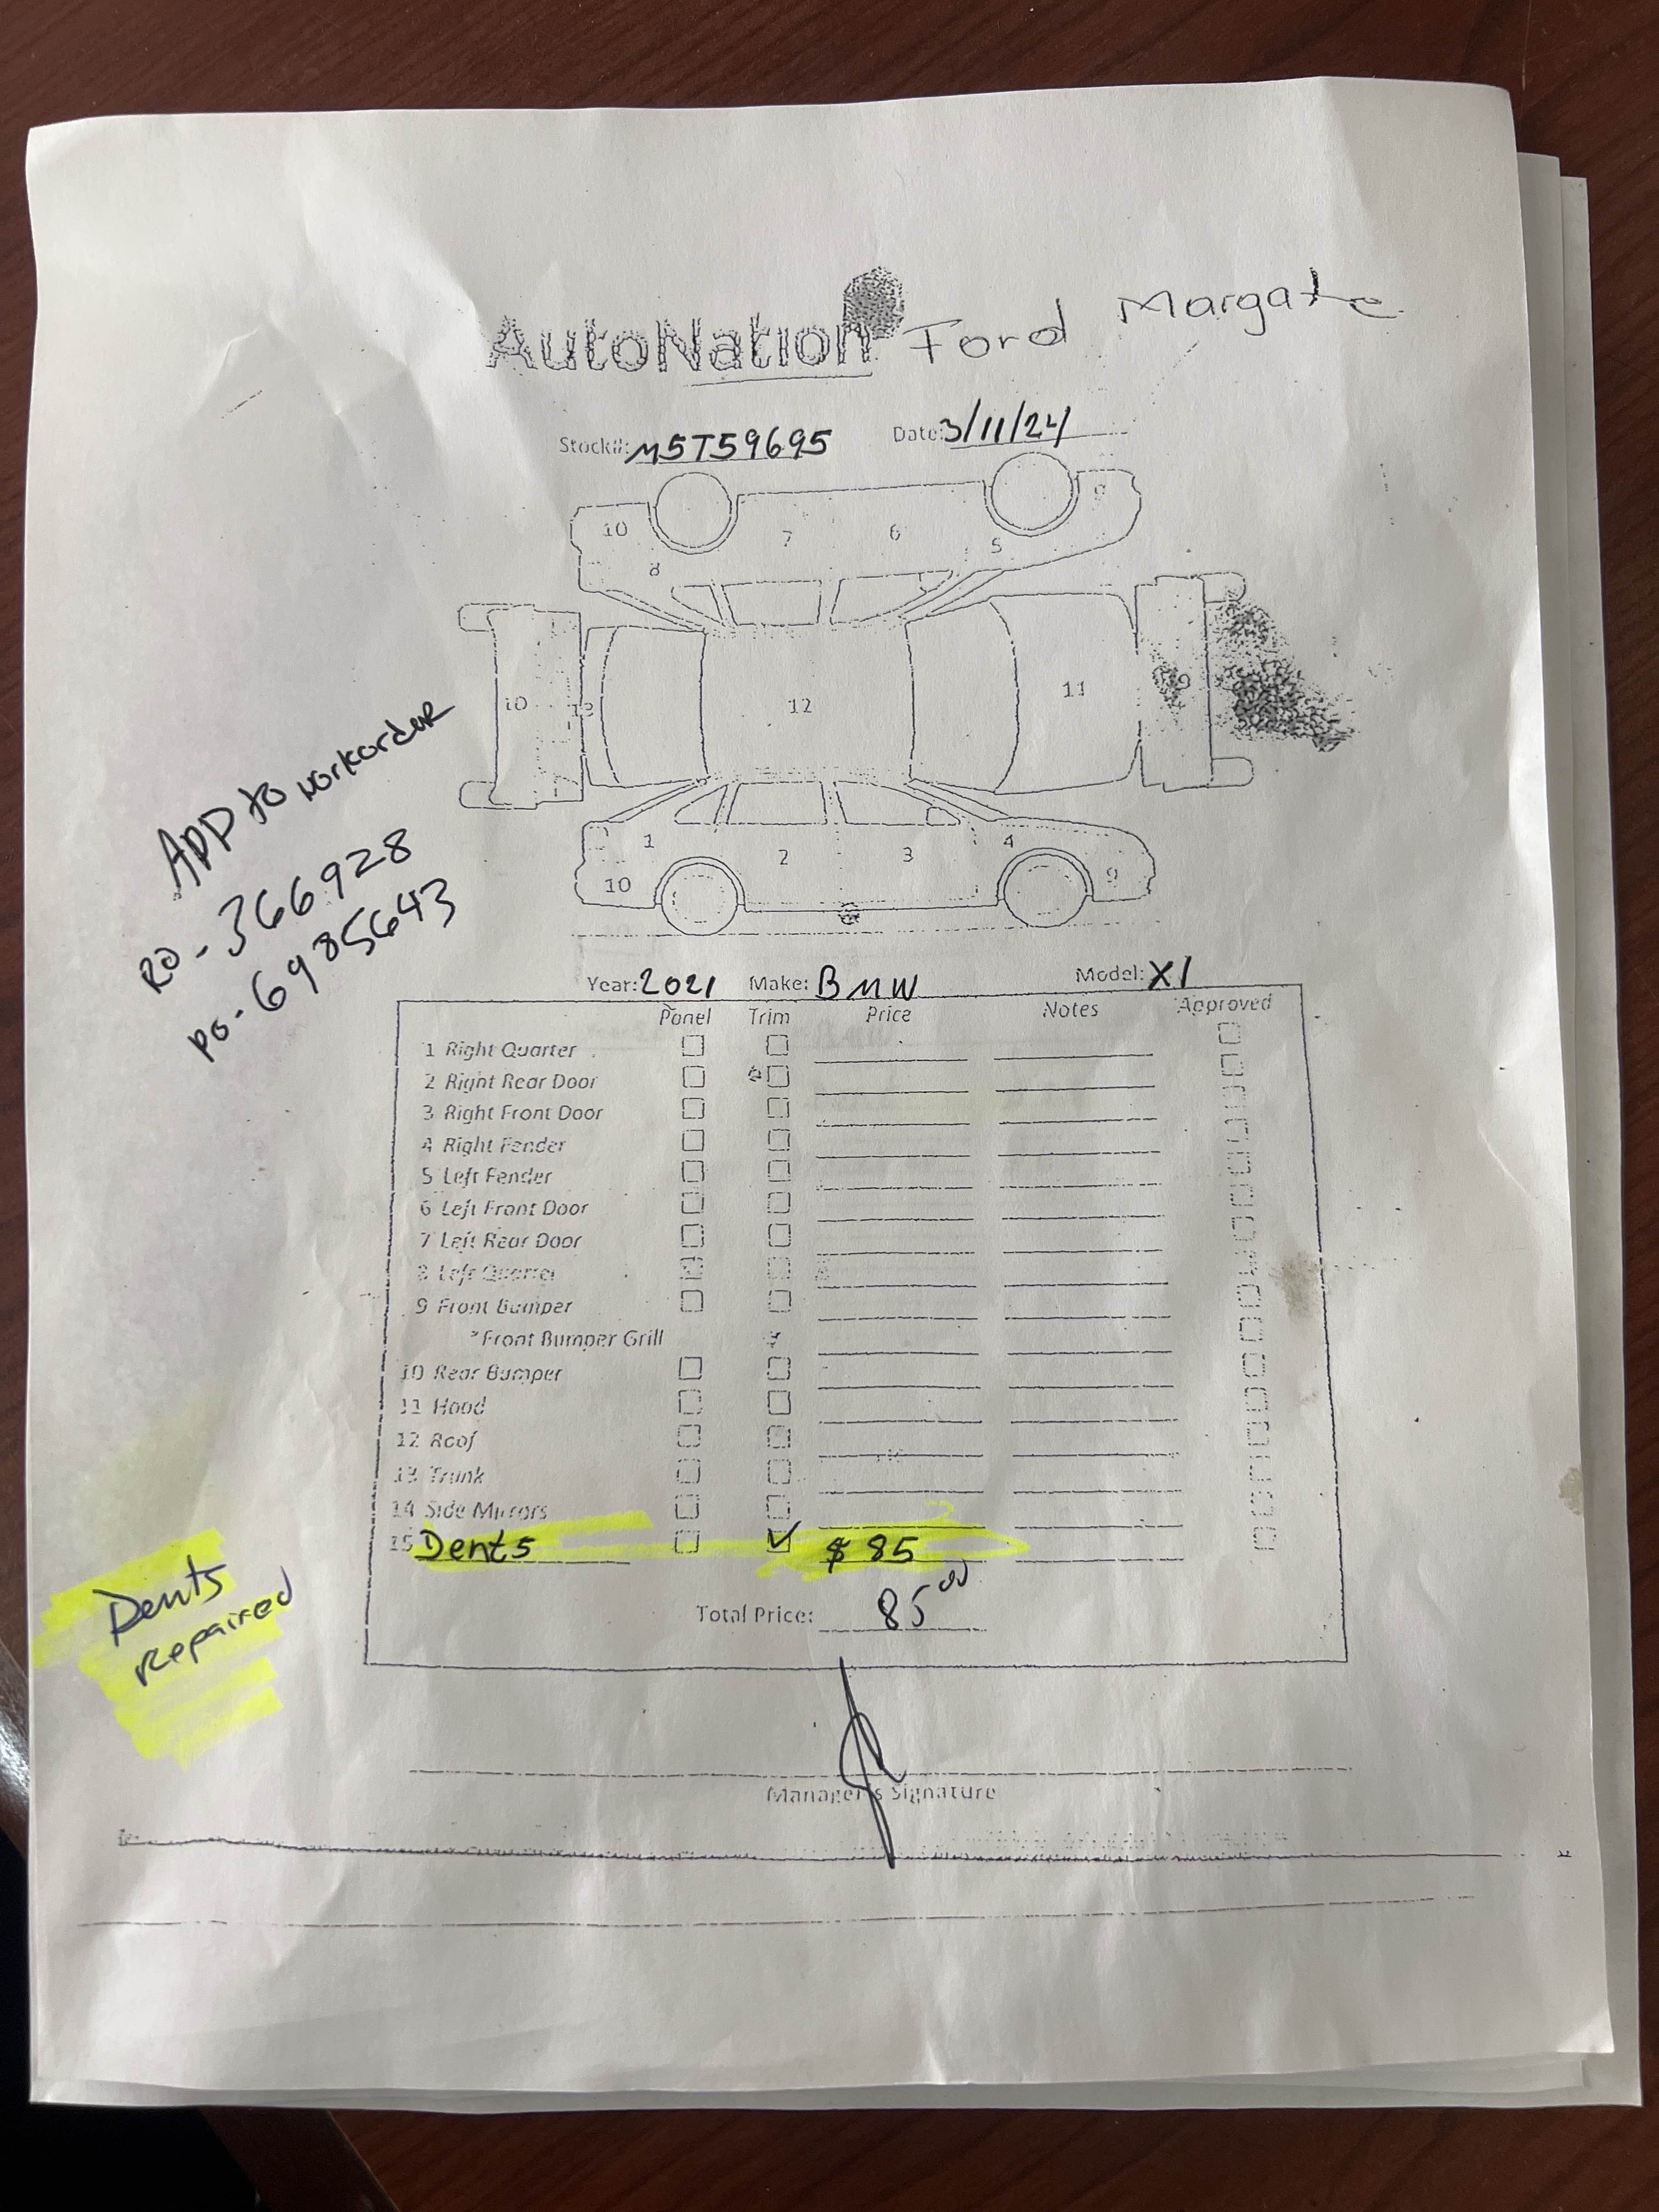 AutoNation Ford Margate
Stock#: M5T59695 Date: 3/11/24
10 7 6 5 9
8
10 13 12 11 9
1 2 3 4
10 9
ADD to workorder
RO-366928
PO-6985643
Year: 2021 Make: BMW Model: X1
Panel Trim Price Notes Approved
1 Right Quarter
2 Right Rear Door
3 Right Front Door
4 Right Fender
5 Left Fender
6 Left Front Door
7 Left Rear Door
8 Left Quarter
9 Front Bumper
*Front Bumper Grill
10 Rear Bumper
11 Hood
12 Roof
13 Trunk
14 Side Mirrors
15 Dents ✓ $85
Total Price: 85 00
Dents
Repaired
Manager's Signature